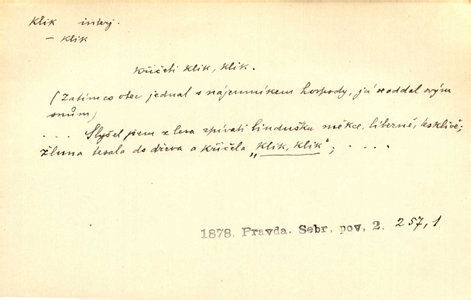 Klik interj.
– klik
Křičeti klik, klik.
(Zatím co otec jednal s nájemníkem hospody, já se oddal svým
snům)
. . . Slyšel jsem z lesa zpívati lindušku měkce, liberně, tesklivě;
žluna tesala do dřeva a křičela „klik, klik"; . . . .
1878. Pravda. Sebr. pov. 2. 257,1